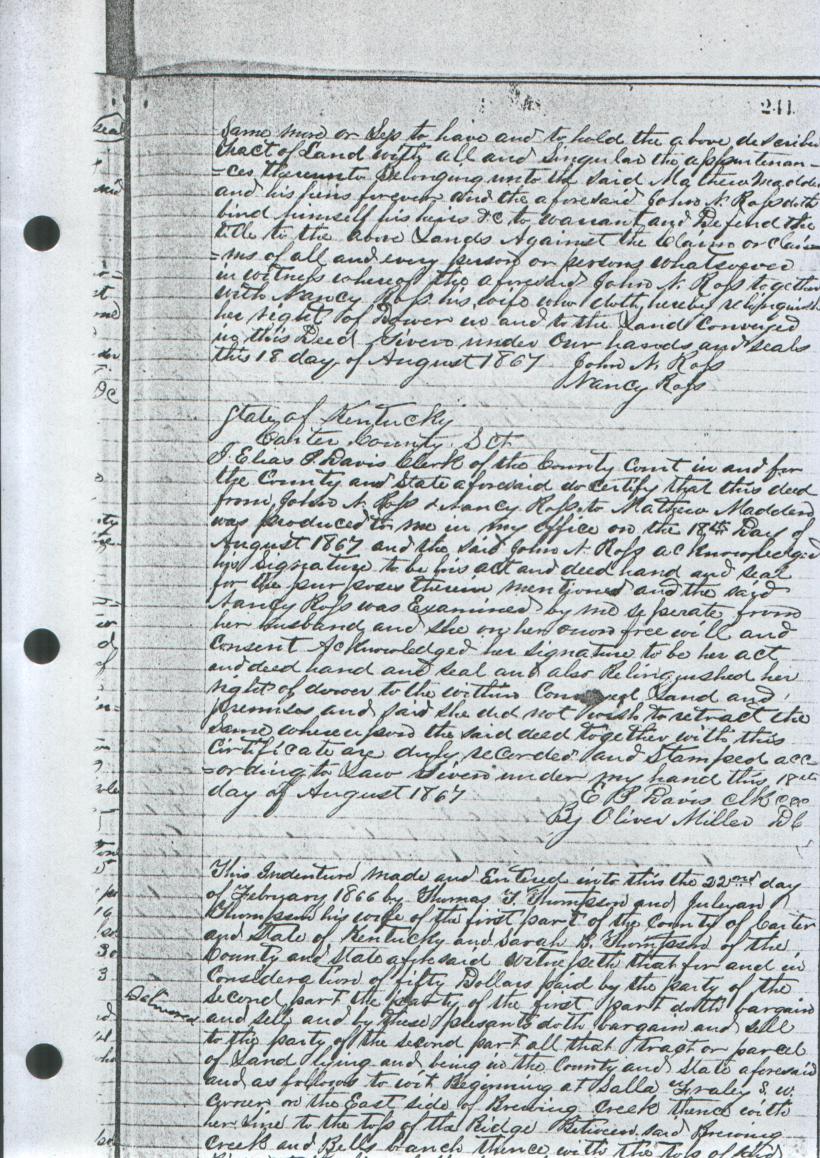 241
Same more or less to have and to hold the above describe
tract of Land with all and Singular the appurtenan-
-ces thereunto Belonging unto the said Mathew Madden
and his heirs forever and the aforesaid John N. Ross doth
bind himself his heirs &c to Warrant and Defend the
title to the above Lands Against the Claim or clai-
-ms of all and every person or persons whatsoever
in witness whereof the aforesaid John N. Ross together
with Nancy Ross his wife who doth hereby relinquish
her right of Dower in and to the Land Conveyed
in this Deed Given under Our hands and seals
this 18 day of August 1867 John N. Ross
Nancy Ross
State of Kentucky
Carter County Sct.
I Elias P Davis Clerk of the County Court in and for
the County and State aforesaid do certify that this deed
from John N. Ross & Nancy Ross to Mathew Madden
was produced to me in my office on the 18th Day of
August 1867 and the said John N. Ross acknowledged
his Signature to be his act and deed hand and seal
for the purposes therein mentioned and the said
Nancy Ross was Examined by me seperate from
her husband and she on her own free will and
Consent Acknowledged her signature to be her act
and deed hand and seal and also Relinquished her
right of dower to the within Conveyed Land and
premises and said she did not wish to retract the
Same whereupon the said deed together with this
Certificate are duly recorded and Stamped acc-
-ording to Law Given under my hand this 18th
day of August 1867 E P Davis Clk
By Oliver Miller DC
This Indenture made and Entered into this the 22nd day
of February 1866 by Thomas T. Thompson and Juleyan
Thompson his wife of the first part of the County of Carter
and State of Kentucky and Sarah Thompson of the
County and State aforesaid Witnesseth that for and in
Consideration of fifty Dollars paid by the party of the
Second part the party of the first part doth bargain
Delivered and sell and by these presants doth bargain and sell
to the party of the second part all that tract or parcel
of Land lying and being in the County and State aforesaid
and as follows to wit Beginning at Fraley S. W.
Corner on the East side of Brewing Creek thence with
her Line to the top of the Ridge Between said Brewing
Creek and Bells branch thence with the top of said